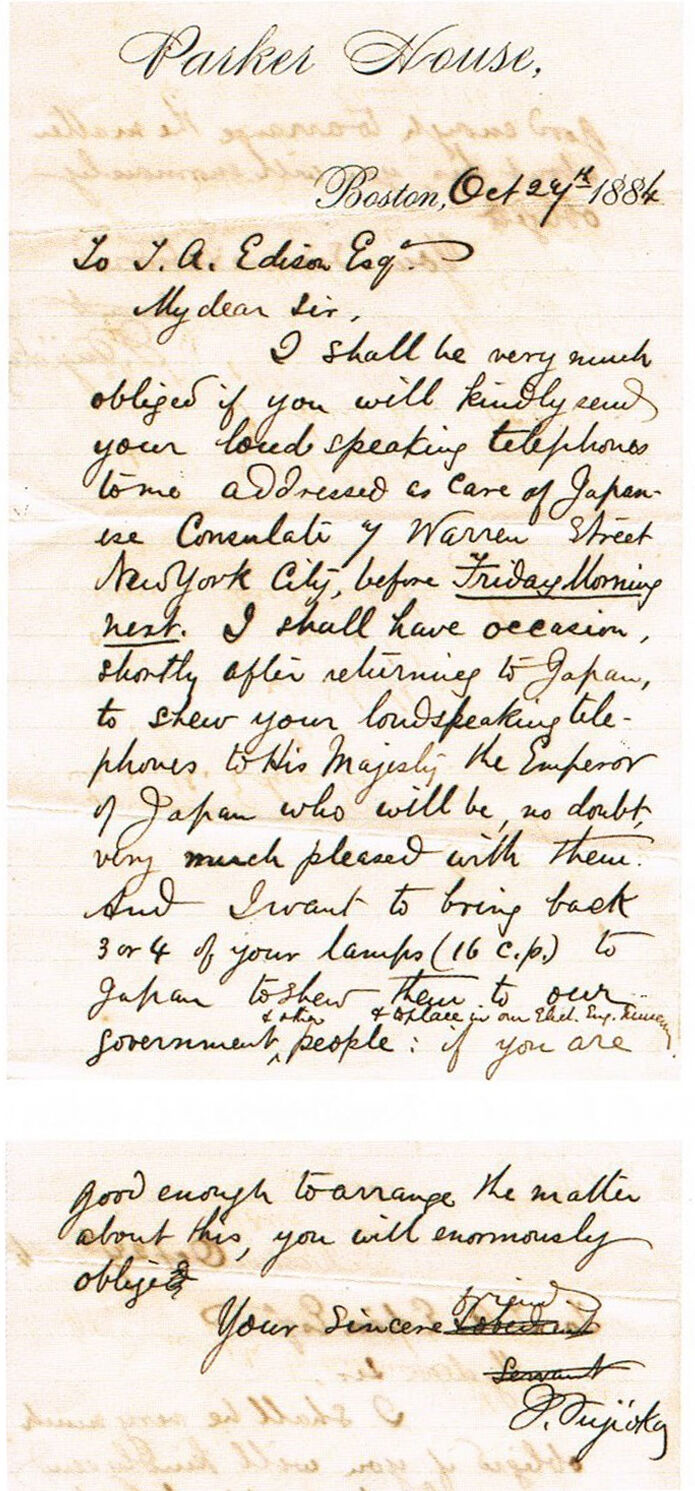 Parker House,
Boston, Oct 27th 1884
To T. A. Edison Esqr.
My dear Sir,
I shall be very much
obliged if you will kindly send
your loud speaking telephones
to me addressed as care of Japan-
ese Consulate 7 Warren Street
New York City, before Friday Morning
next. I shall have occasion,
shortly after returning to Japan,
to shew your loudspeaking tele-
phones to His Majesty the Emperor
of Japan who will be, no doubt,
very much pleased with them.
And I want to bring back
3 or 4 of your lamps (16 c.p.) to
Japan to shew them to our
& other & to place in our Elect. Eng. Museum
government people : if you are
good enough to arrange the matter
about this, you will enormously
oblige
friend
Your sincere obedient
servant
I. Fujioka